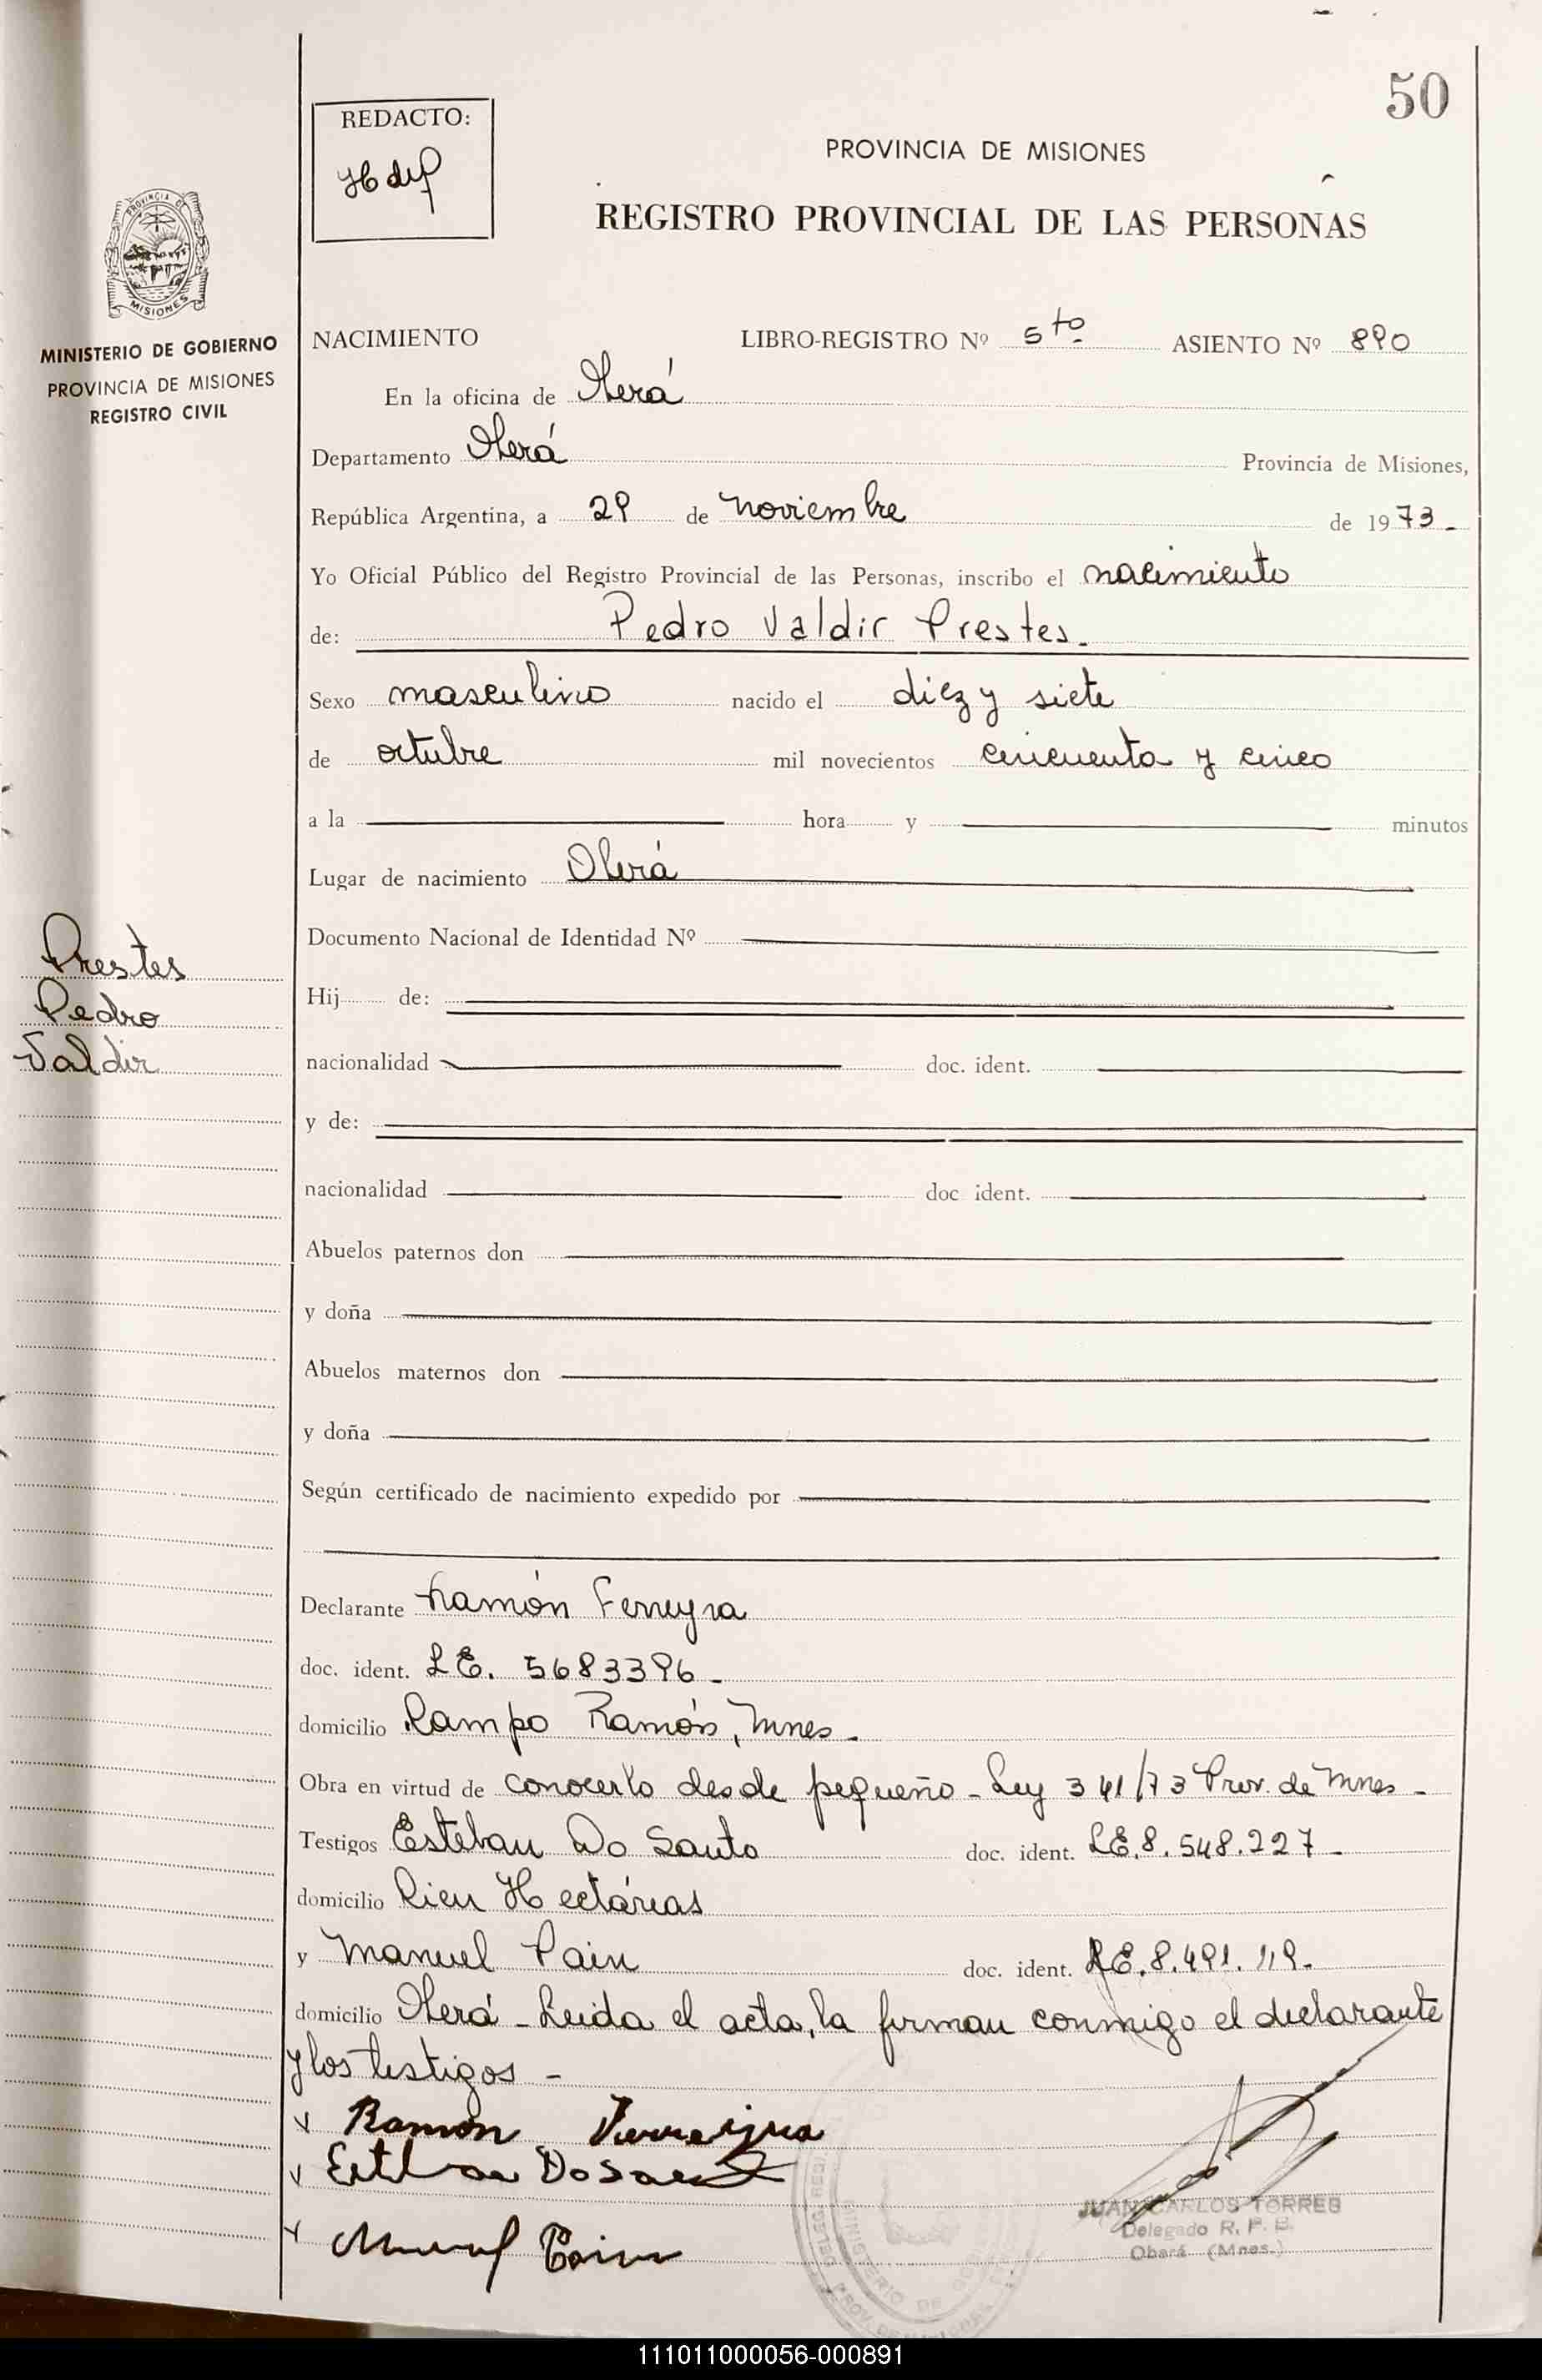 50
REDACTO:
PROVINCIA DE MISIONES
REGISTRO PROVINCIAL DE LAS PERSONAS
PROVINCIA DE
MISIONES
MINISTERIO DE GOBIERNO
PROVINCIA DE MISIONES
REGISTRO CIVIL
NACIMIENTO LIBRO-REGISTRO Nº 5to ASIENTO Nº 890
En la oficina de Oberá
Departamento Oberá Provincia de Misiones,
República Argentina, a 29 de noviembre de 1973-
Yo Oficial Público del Registro Provincial de las Personas, inscribo el nacimiento
de: Pedro Valdir Prestes.
Sexo masculino nacido el diez y siete
de octubre mil novecientos cincuenta y cinco
a la hora y minutos
Lugar de nacimiento Oberá
Documento Nacional de Identidad Nº
Prestes
Pedro
Valdir
Hij de:
nacionalidad doc. ident.
y de:
nacionalidad doc ident.
Abuelos paternos don
y doña
Abuelos maternos don
y doña
Según certificado de nacimiento expedido por
Declarante Ramón Ferreyra
doc. ident. LE. 5683396-
domicilio Campo Ramón, Mnes.
Obra en virtud de conocerlo desde pequeño - Ley 341/73 Prov. de Mnes-
Testigos Esteban Do Santo doc. ident. LE.8.548.227-
domicilio Cien Hectáreas
y Manuel Pain doc. ident. LE.8.491.119.
domicilio Oberá - Leida el acta, la firman conmigo el declarante
y los testigos -
Ramón Ferreijra
Esteban Do Santo
Manuel Pain
JUAN CARLOS TORRES
Delegado R. P. P.
Oberá (Mnes.)
111011000056-000891